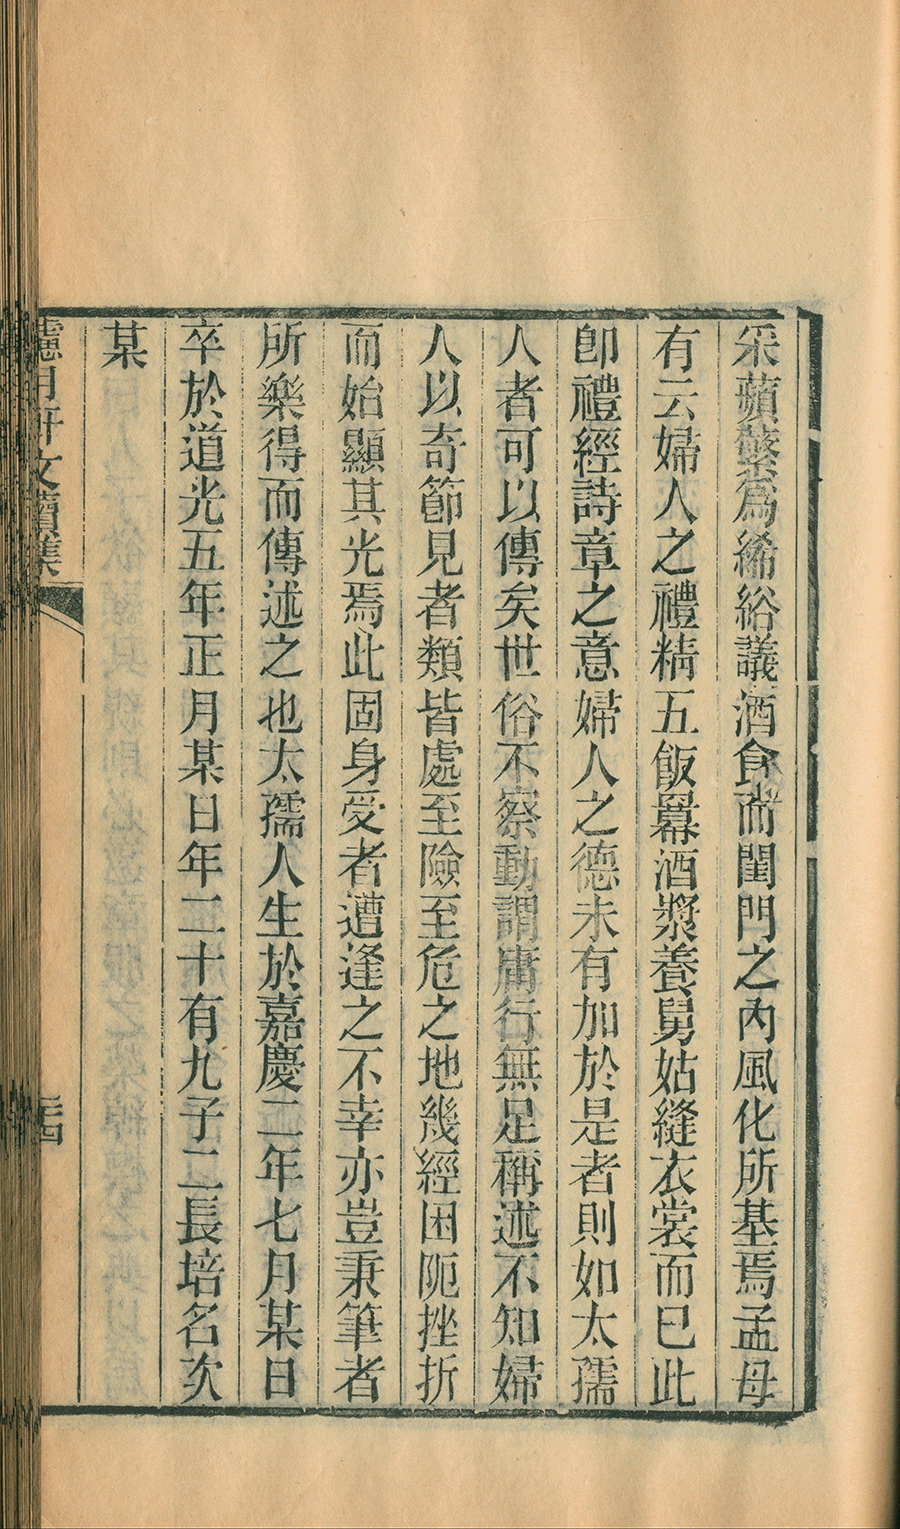 采蘋蘩為絺綌議酒食而閨門之內風化所基焉孟母
有云婦人之禮精五飯羃酒漿養舅姑縫衣裳而已此
卽禮經詩章之意婦人之德未有加於是者則如太孺
人者可以傳矣世俗不察動謂庸行無足稱述不知婦
人以奇節見者類皆處至險至危之地幾經困阨挫折
而始顯其光焉此固身受者遭逢之不幸亦豈秉筆者
所樂得而傳述之也太孺人生於嘉慶二年七月某日
卒於道光五年正月某日年二十有九子二長培名次
某
月軒文續集